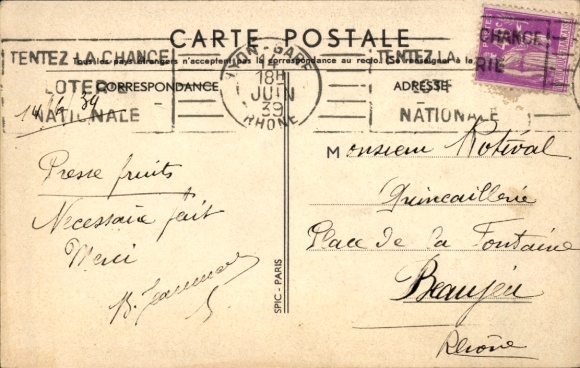 CARTE POSTALE
Tous les pays étrangers n'acceptent pas la correspondance au recto. Se renseigner à la
CORRESPONDANCE
ADRESSE
TENTEZ LA CHANCE
LOTERIE
NATIONALE
LYON-GARE
18H
JUIN
39
RHÔNE
TENTEZ LA CHANCE
RIE
NATIONALE
14/6 39
Presse fruits
Necessaire fait
Merci
Monsieur Rotival
Quincaillerie
Place de la Fontaine
Beaujeu
Rhône
SPIC - PARIS